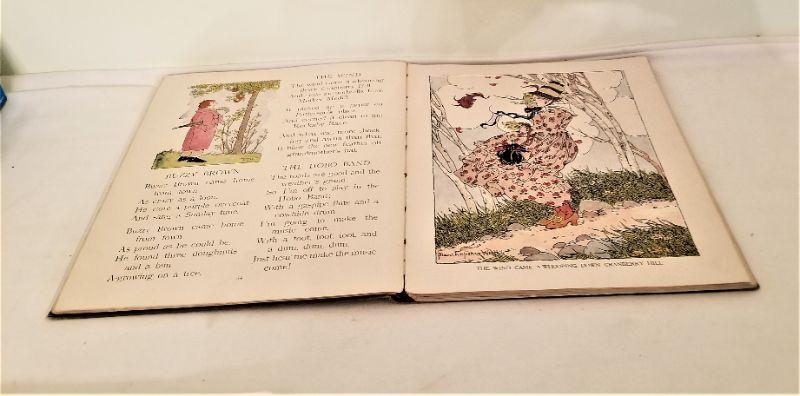 BUZZY BROWN
Buzzy Brown came home
from town
As crazy as a loon,
He wore a purple overcoat
And sang a Sunday tune.
Buzzy Brown came home
from town
As proud as he could be,
He found three doughnuts
and a bun
A-growing on a tree.
THE WIND
The wind came a-whooping
down Cranberry Hill
And stole an umbrella from
Mother
It
place
And carried a
And what was more
and than that,
It blew the new feather off
grandmother's hat.
THE HOBO BAND
The roads are good and the
weather's grand
So I'm off to play in the
Hobo Band;
With a gaspipe flute and a
cowhide drum
I'm going to make the
music come,
With a toot, toot, toot, and
a dum, dum, dum,
Just hear me make the music
come!
THE WIND CAME A-WHOOPING DOWN CRANBERRY HILL